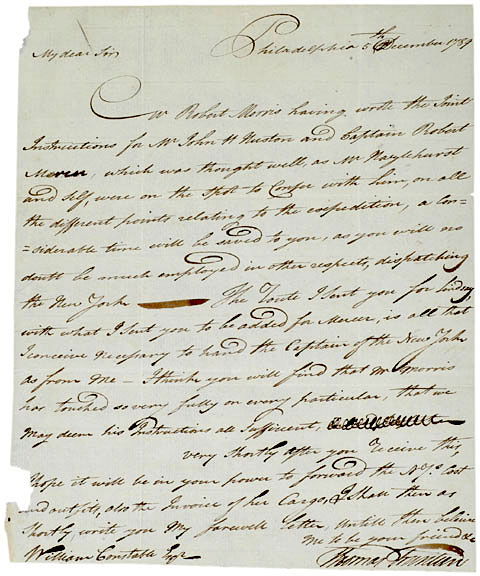 My dear Sir
Philadelphia 5th December 1789
Mr Robert Morris having wrote the Joint
Instructions for Mr John H Huston and Captain Robert
Mercer, which was thought well, as Mr Hazlehurst
and self, were on the spot to Confer with him, on all
the different points relating to the expedition, a Con=
=siderable time will be saved to you, as you will no
doubt be much employed in other respects, dispatching
the New York The Route I sent you for Lindsay
with what I sent you to be added for Mercer, is all that
I conceive Necessary to hand the Captain of the New York
as from Me — I think you will find that Mr Morris
has touched so very fully on every particular, that we
May deem his Instructions all Sufficient,
very shortly after you Receive this,
hope it will be in your power to forward the N Ys Cost
and outfits, also the Invoice of her Cargo, I shall then as
Shortly write you My farewell Letter, Untill then believe
Me to be your friend &c
William Constable Esqr
Thomas